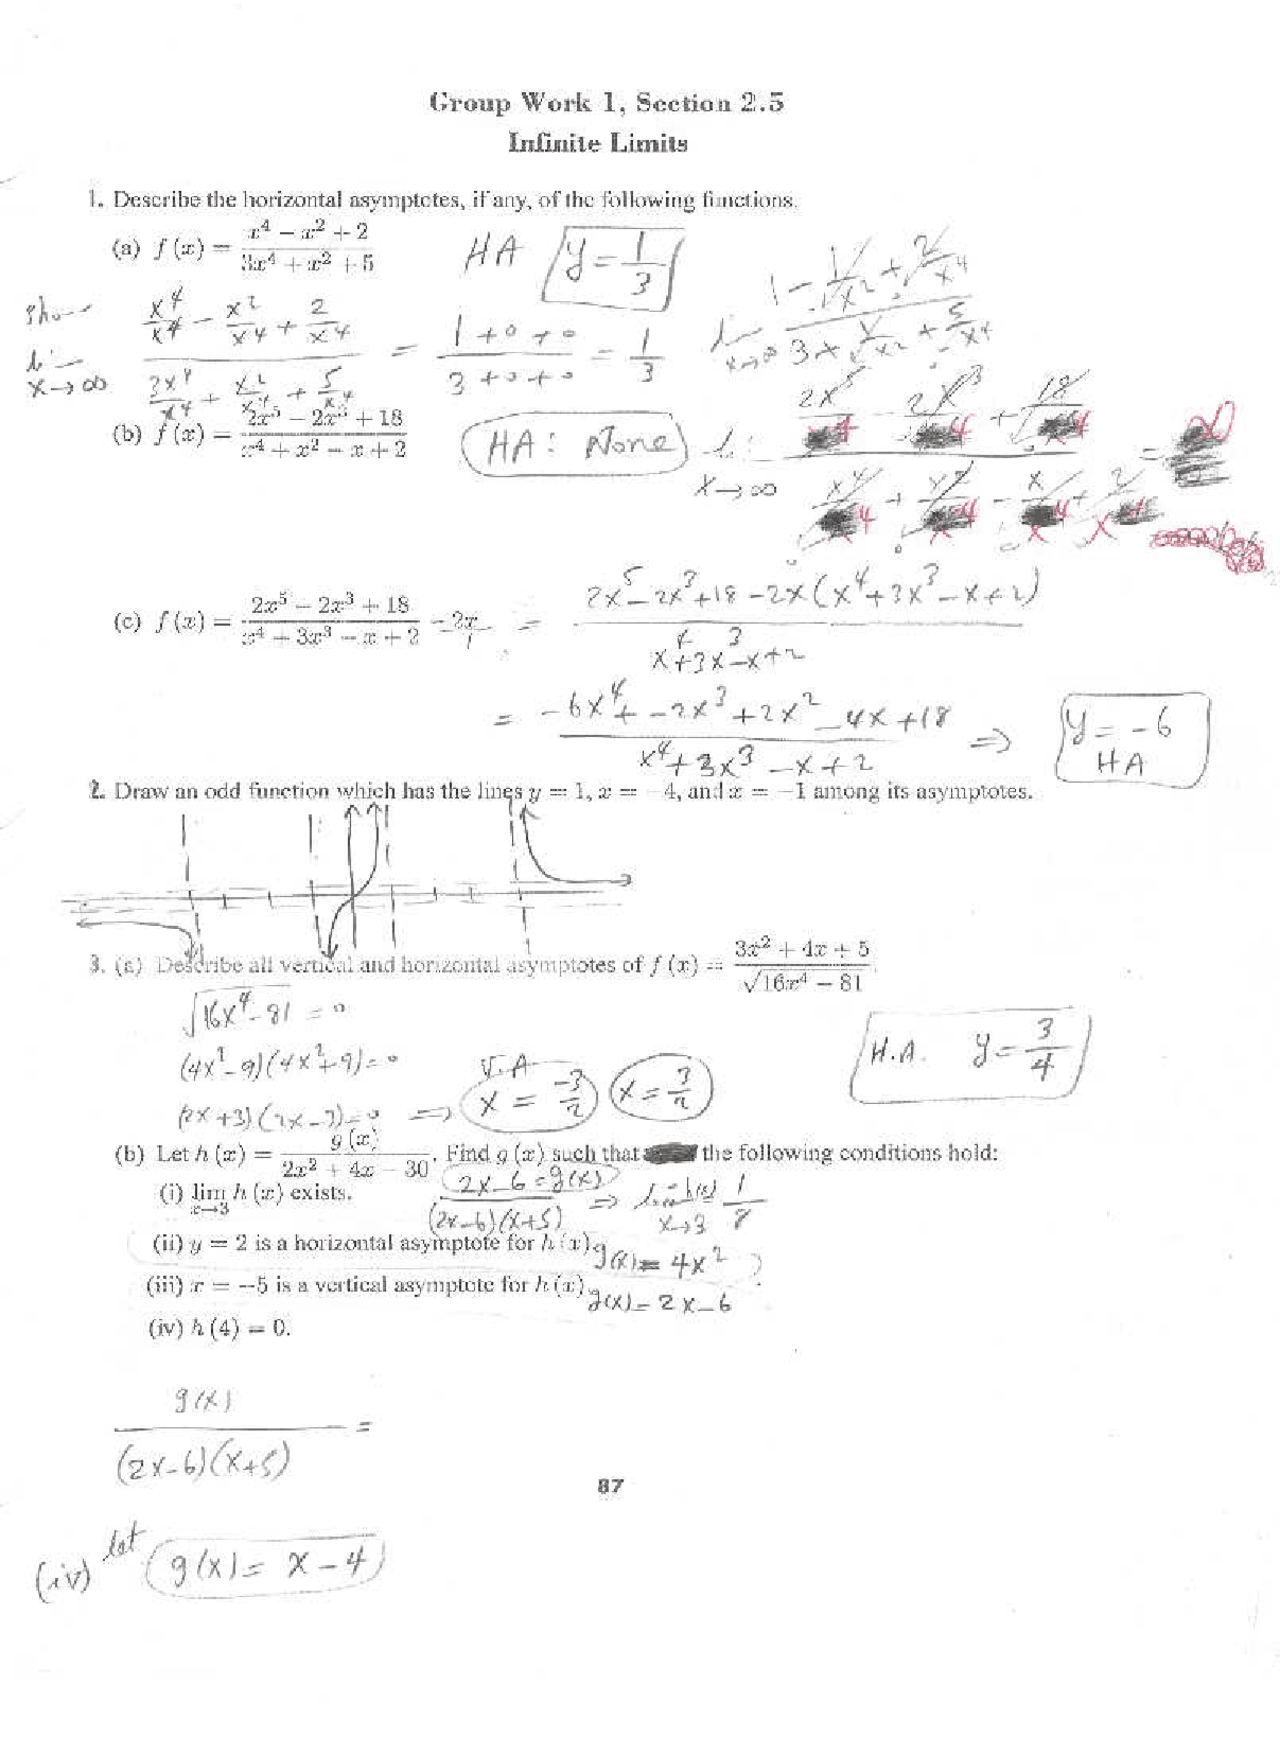 Group Work 1, Section 2.5
Infinite Limits
1. Describe the horizontal asymptotes, if any, of the following functions.
(a) f (x) = (x⁴ − x² + 2)/(3x⁴ + x² + 5)
HA y = 1/3
lim x→∞ (1 − 1/x² + 2/x⁴)/(3 + 1/x² + 5/x⁴)
lim x→∞ (x⁴/x⁴ − x²/x⁴ + 2/x⁴)/(3x⁴/x⁴ + x²/x⁴ + 5/x⁴) = (1+0+0)/(3+0+0) = 1/3
(b) f (x) = (2x⁵ − 2x³ + 18)/(x⁴ + x² − x + 2)
HA: None
lim x→∞ (2x⁵/x⁴ − 2x³/x⁴ + 18/x⁴)/(x⁴/x⁴ + x²/x⁴ − x/x⁴ + 2/x⁴) = ∞
(c) f (x) = (2x⁵ − 2x³ + 18)/(x⁴ + 3x³ − x + 2) − 2x/1 = (2x⁵−2x³+18−2x(x⁴+3x³−x+2))/(x⁴+3x³−x+2)
= (−6x⁴+−2x³+2x²−4x+18)/(x⁴+3x³−x+2) ⇒ y = −6 HA
2. Draw an odd function which has the lines y = 1, x = −4, and x = −1 among its asymptotes.
3. (a) Describe all vertical and horizontal asymptotes of f (x) = (3x² + 4x + 5)/√(16x⁴ − 81)
√(16x⁴−81) = 0
H.A. y = 3/4
(4x²−9)(4x²+9)=0
V.A
(2x+3)(2x−3)=0 ⇒ x = −3/2 x = 3/2
(b) Let h (x) = g (x)/(2x² + 4x − 30). Find g (x) such that the following conditions hold:
(i) lim x→3 h (x) exists.
2x−6=g(x)/(2x−6)(x+5) ⇒ lim x→3 h(x) 1/8
(ii) y = 2 is a horizontal asymptote for h (x). g(x) = 4x²
(iii) x = −5 is a vertical asymptote for h (x). g(x) = 2x−6
(iv) h (4) = 0.
g(x)/(2x−6)(x+5) =
87
(iv) let g(x) = x − 4